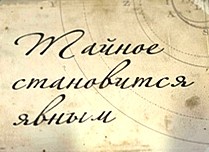 Тайное
становится
явным